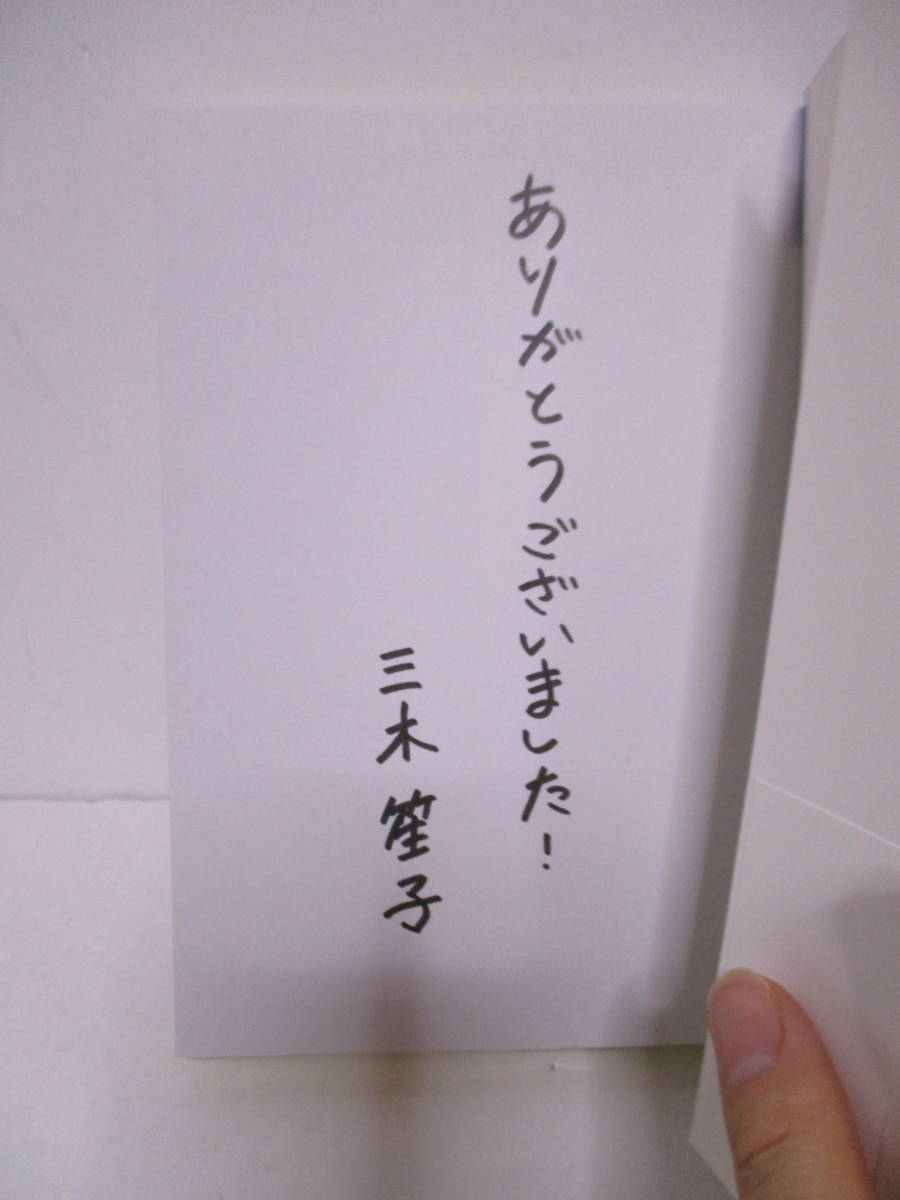 ありがとうございました!
三木笙子